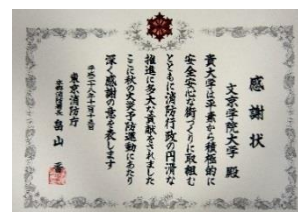 感謝状
文京学院大学 殿
貴大学は平素から積極的に
安全安心な街づくりに取組む
とともに消防行政の円滑な
推進に多大な貢献をされました
ここに秋の火災予防運動にあたり
深く感謝の意を表します
平成二十八年十一月十五日
東京消防庁
消防署長 畠山